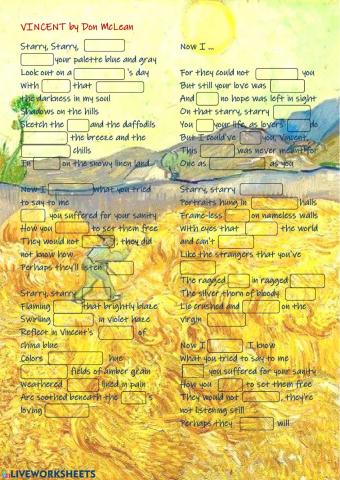 VINCENT by Don McLean
Starry, Starry,
your palette blue and gray
Look out on a 's day
With that
the darkness in my soul
Shadows on the hills
Sketch the and the daffodils
the breeze and the
chills
In on the snowy linen land
Now I what you tried
to say to me
you suffered for your sanity
How you to set them free
They would not , they did
not know how
Perhaps they'll listen
Starry, starry
Flaming that brightly blaze
Swirling in violet haze
Reflect in Vincent's of
china blue
Colors hue
fields of amber grain
Weathered lined in pain
Are soothed beneath the 's
loving
Now I ...
For they could not you
But still your love was
And no hope was left in sight
On that starry, starry
You your life as lovers do
But I could've you, Vincent,
This was never meant for
One as as you
Starry, starry
Portraits hung in halls
Frame-less on nameless walls
With eyes that the world
and can't
Like the strangers that you've
The ragged in ragged
The silver thorn of bloody
Lie crushed and on the
virgin
Now I , I know
What you tried to say to me
you suffered for your sanity
How you to set them free
They would not , they're
not listening still
Perhaps they will
LIVEWORKSHEETS